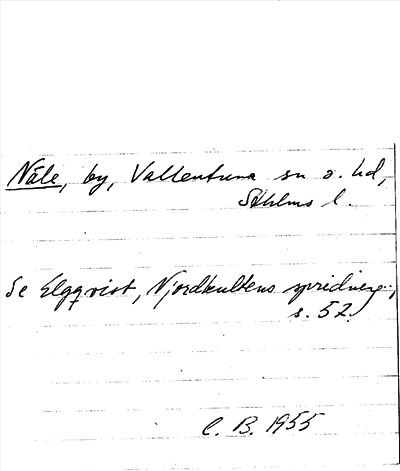 Nåle, by, Vallentuna sn o. hd,
Sthlms l.
Se Elgqvist, Njordkultens spridning,
s. 52.
C. B. 1955